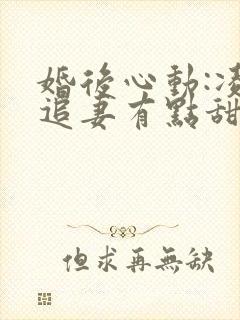 婚後心動:
追妻有點甜
但求再無缺